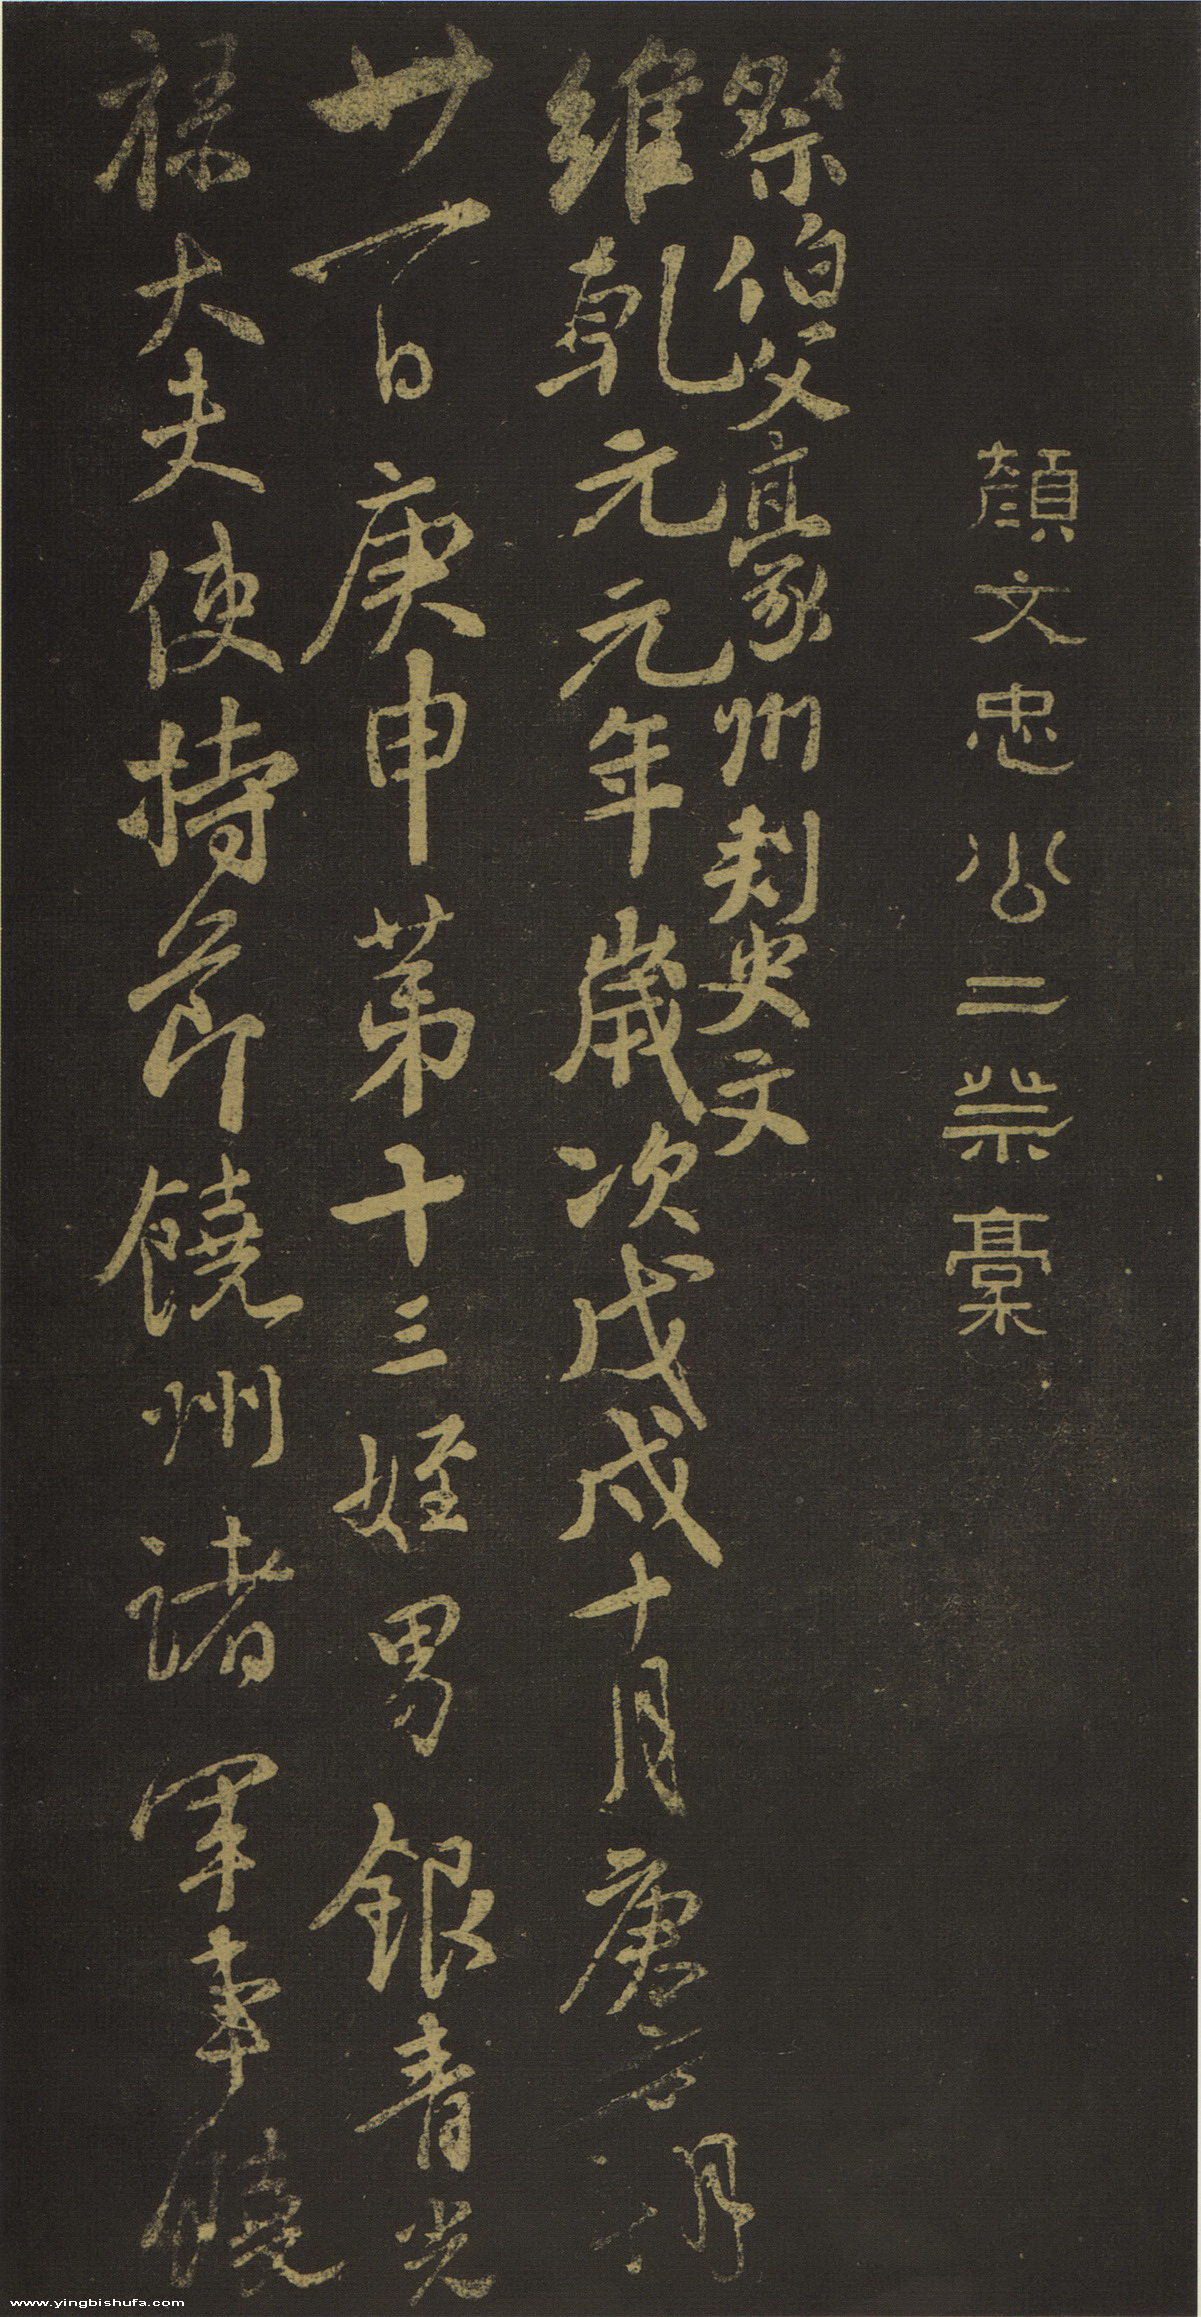 顏文忠公二祭稾
祭伯父豪州刺史文
維乾元元年歲次戊戌十月庚子朔
廿一日庚申苐十三姪男銀青光
祿大夫使持節饒州諸軍事饒
www.yingbishufa.com